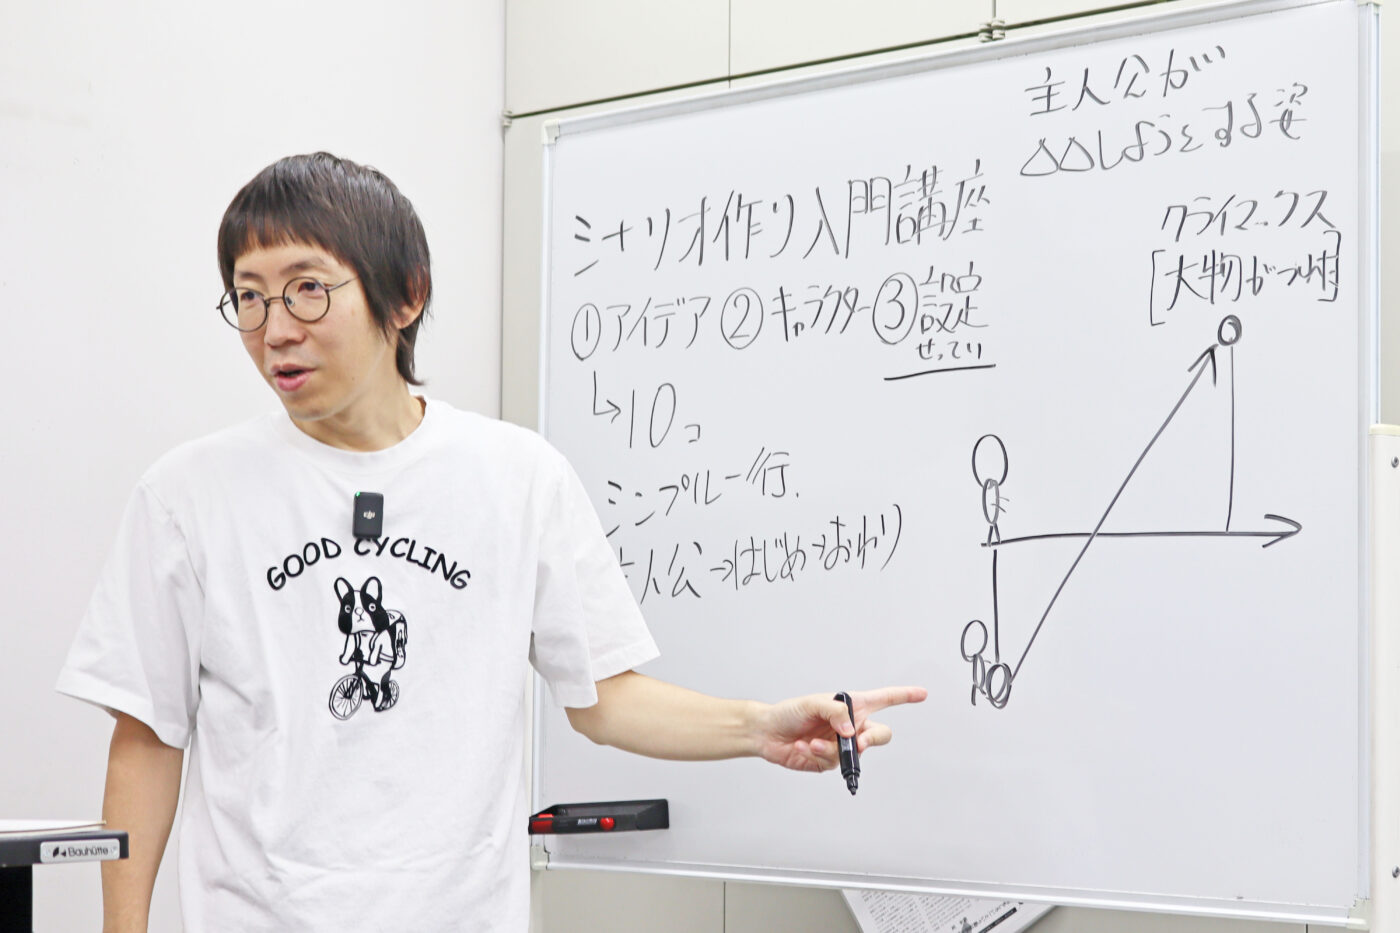 主人公が
△△しようとする姿
シナリオ作り入門講座
クライマックス
①アイデア ②キャラクター ③設定
せってい
→10コ
シンプル一行.
人公→はじめ→おわり
GOOD CYCLING
dji
Bauhütte